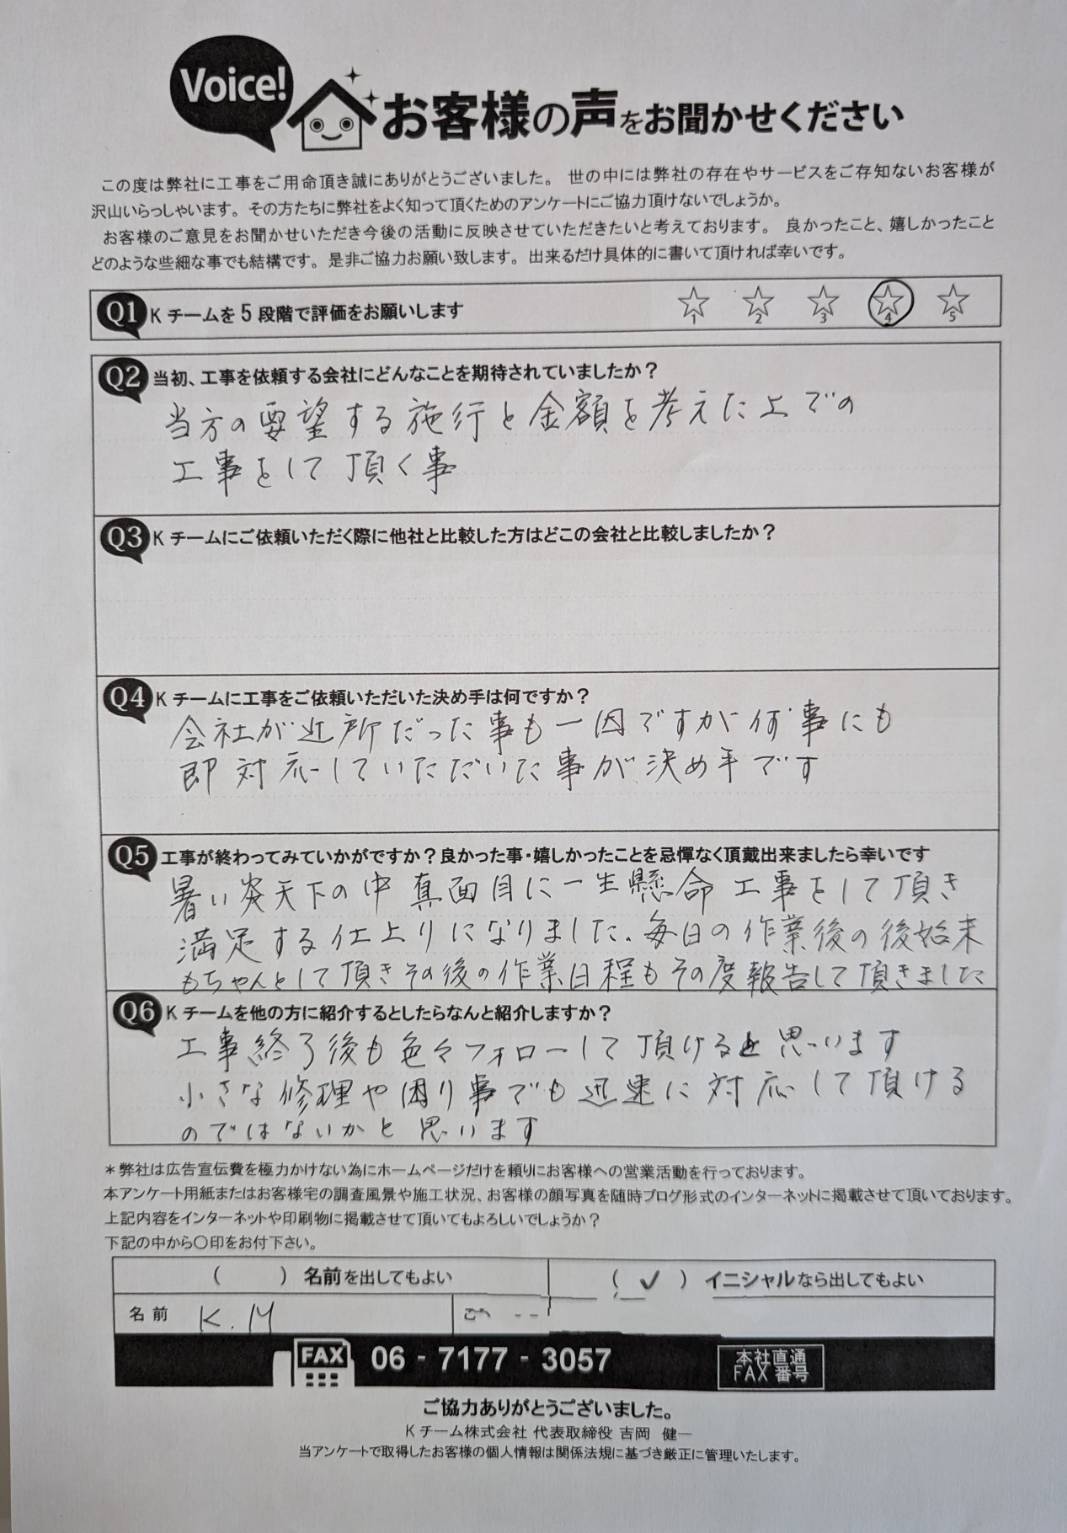 Voice!
お客様の声をお聞かせください
この度は弊社に工事をご用命頂き誠にありがとうございました。 世の中には弊社の存在やサービスをご存知ないお客様が
沢山いらっしゃいます。その方たちに弊社をよく知って頂くためのアンケートにご協力頂けないでしょうか。
お客様のご意見をお聞かせいただき今後の活動に反映させていただきたいと考えております。 良かったこと、嬉しかったこと
どのような些細な事でも結構です。是非ご協力お願い致します。出来るだけ具体的に書いて頂ければ幸いです。
Q1 Kチームを5段階で評価をお願いします ☆1 ☆2 ☆3 ☆4 ☆5
Q2 当初、工事を依頼する会社にどんなことを期待されていましたか？
当方の要望する施行と金額を考えた上での
工事をして頂く事
Q3 Kチームにご依頼いただく際に他社と比較した方はどこの会社と比較しましたか？
Q4 Kチームに工事をご依頼いただいた決め手は何ですか？
会社が近所だった事も一因ですが何事にも
即対応していただいた事が決め手です
Q5 工事が終わってみていかがですか？良かった事・嬉しかったことを忌憚なく頂戴出来ましたら幸いです
暑い炎天下の中真面目に一生懸命工事をして頂き
満足する仕上りになりました。毎日の作業後の後始末
もちゃんとして頂きその後の作業日程もその度報告して頂きました
Q6 Kチームを他の方に紹介するとしたらなんと紹介しますか？
工事終了後も色々フォローして頂けると思います
小さな修理や困り事でも迅速に対応して頂ける
のではないかと思います
＊弊社は広告宣伝費を極力かけない為にホームページだけを頼りにお客様への営業活動を行っております。
本アンケート用紙またはお客様宅の調査風景や施工状況、お客様の顔写真を随時ブログ形式のインターネットに掲載させて頂いております。
上記内容をインターネットや印刷物に掲載させて頂いてもよろしいでしょうか？
下記の中から〇印をお付下さい。
（　　）名前を出してもよい （✓）イニシャルなら出してもよい
名前 K.M
FAX 06-7177-3057 本社直通
FAX番号
ご協力ありがとうございました。
Kチーム株式会社 代表取締役 吉岡 健一
当アンケートで取得したお客様の個人情報は関係法規に基づき厳正に管理いたします。